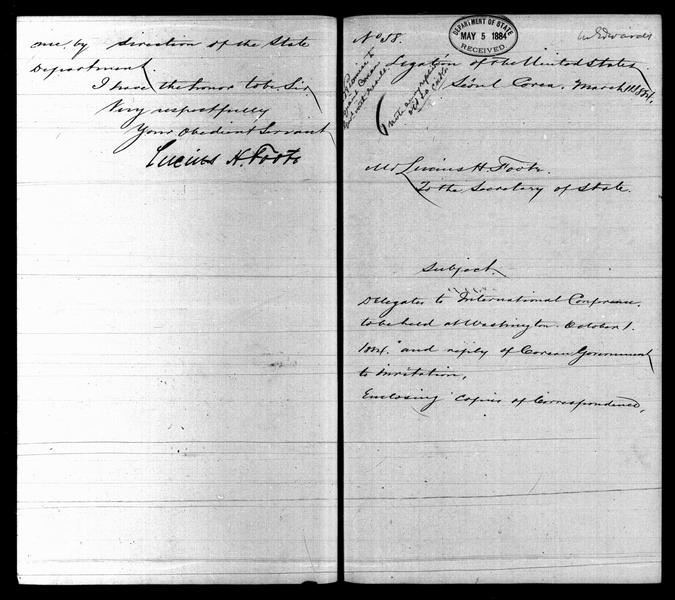 me by direction of the State
Department.
I have the honor to be Sir
Very respectfully
Your Obedient Servant
Lucius H. Foote
No 58.
DEPARTMENT OF STATE
MAY 5 1884
RECEIVED
Legation of the United States
Séoul Corea, March
Mr Lucius H. Foote.
To the Secretary of State.
Subject.
Delegates to International Conference.
to be held at Washington October 1.
1884. and reply of Corean Government
to Invitation.
Enclosing Copies of Correspondence.